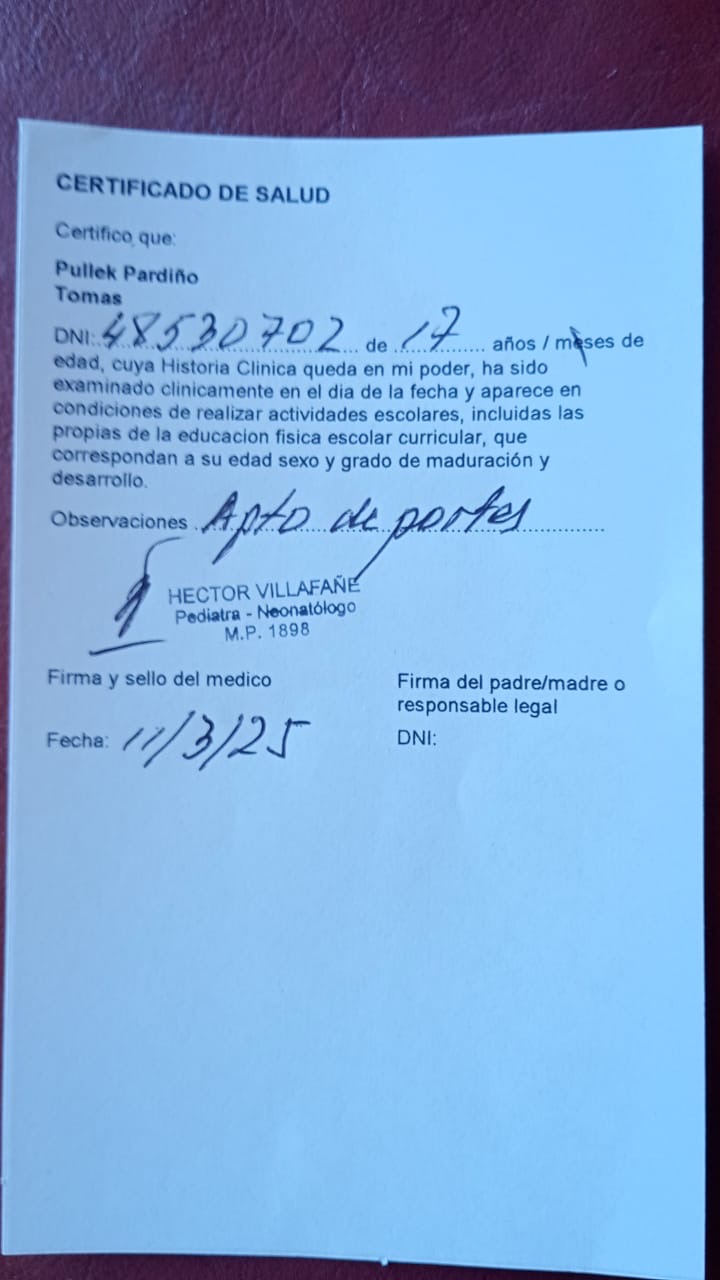 CERTIFICADO DE SALUD
Certifico que:
Pullek Pardiño
Tomas
DNI: 48530702 de 17 años / meses de
edad, cuya Historia Clinica queda en mi poder, ha sido
examinado clinicamente en el dia de la fecha y aparece en
condiciones de realizar actividades escolares, incluidas las
propias de la educacion fisica escolar curricular, que
correspondan a su edad sexo y grado de maduración y
desarrollo.
Observaciones Apto deportes
HECTOR VILLAFAÑE
Pediatra - Neonatólogo
M.P. 1898
Firma y sello del medico
Fecha: 11/3/25
Firma del padre/madre o
responsable legal
DNI: